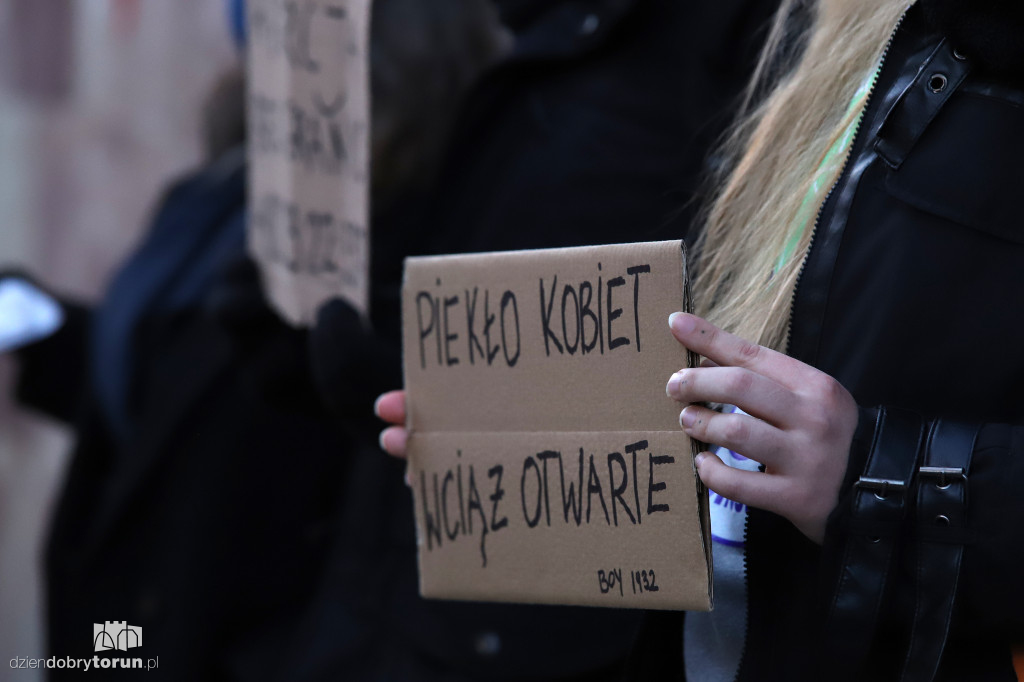 PIEKŁO KOBIET
WCIĄŻ OTWARTE
BOY 1932
dziendobrytorun.pl